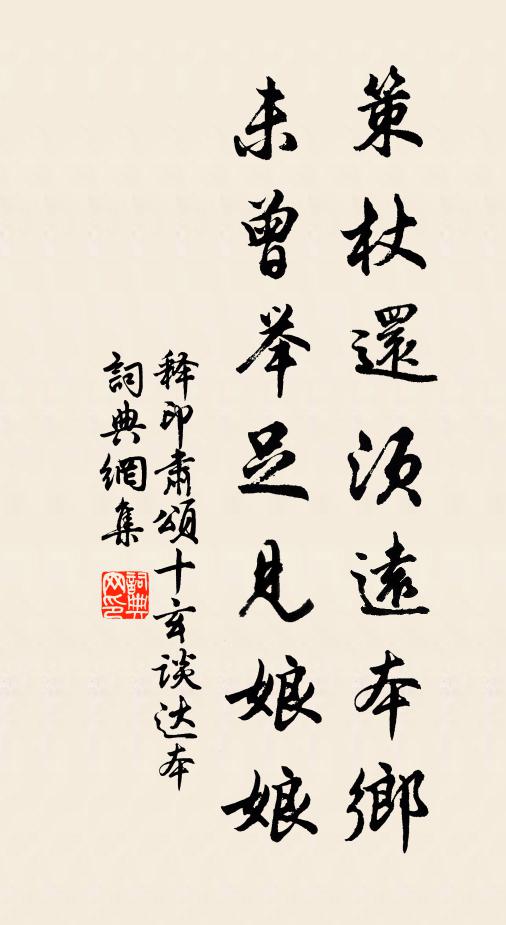 策杖還須遠本鄉
未曾举足見娘娘
释印肅頌十玄談达本
詞典網集
詞典网印